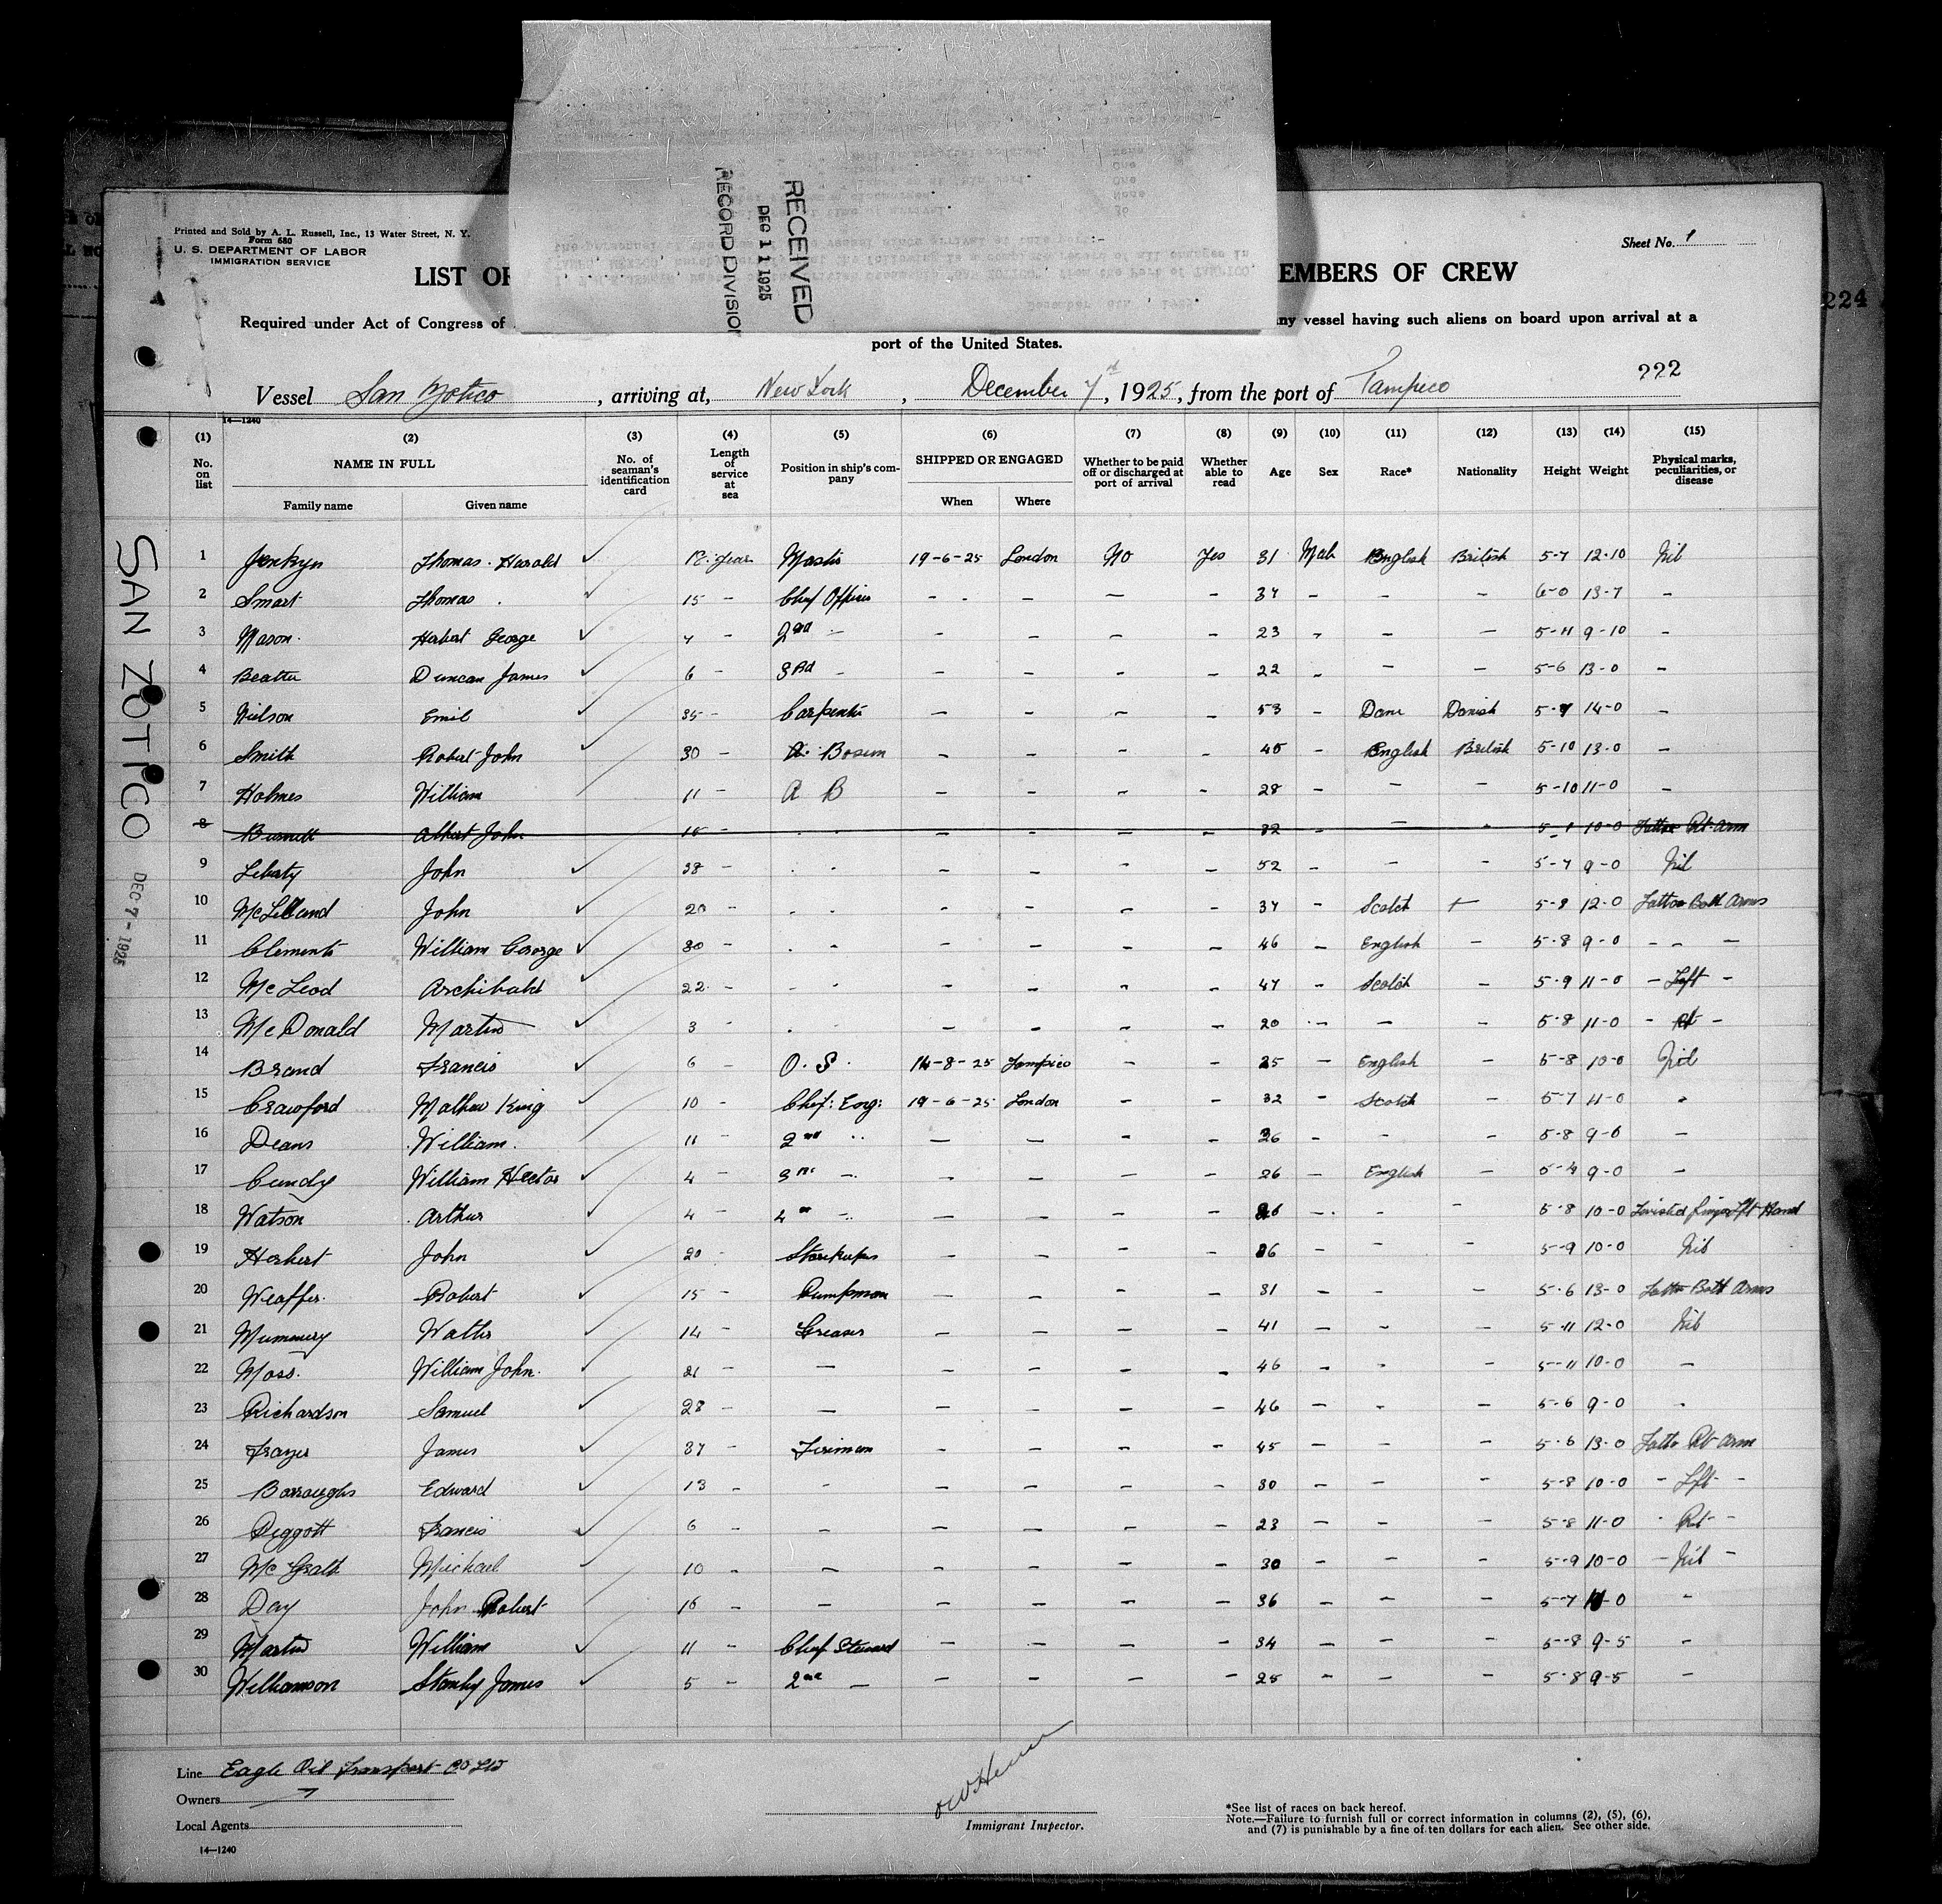 RECEIVED
DEC 11 1925
RECORD DIVISION
Printed and Sold by A. L. Russell, Inc., 13 Water Street, N. Y.
Form 680
U. S. DEPARTMENT OF LABOR
IMMIGRATION SERVICE
Sheet No. 1
LIST OF EMBERS OF CREW
224
Required under Act of Congress of ny vessel having such aliens on board upon arrival at a
port of the United States.
222
Vessel San Zotico, arriving at, New York, December 7, 1925, from the port of Tampico
14—1240
(1) (2) (3) (4) (5) (6) (7) (8) (9) (10) (11) (12) (13) (14) (15)
No. on list NAME IN FULL No. of seaman's identification card Length of service at sea Position in ship's company SHIPPED OR ENGAGED Whether to be paid off or discharged at port of arrival Whether able to read Age Sex Race* Nationality Height Weight Physical marks, peculiarities, or disease
Family name Given name When Where
SAN ZOTICO
DEC 7 - 1925
1 Jenkyn Thomas Harold ✓ Years Master 19-6-25 London No Yes 31 Male English British 5-7 12-10 Nil
2 Smart Thomas ✓ 15 – Chief Officer – – – – 34 – – – 6-0 13-7 –
3 Mason Herbert George ✓ 4 – 2nd – – – – – 23 – – – 5-11 9-10 –
4 Duncan James ✓ 6 – 3rd – – – – – 22 – – – 5-6 13-0 –
5 Nielson Emil ✓ 35 – Carpenter – – – – 53 – Dane Danish 5-7 14-0 –
6 Smith Robert John ✓ 30 – Bosun – – – – 45 – English British 5-10 13-0 –
7 Holmes William 11 – A B – – – – 28 – – – 5-10 11-0 –
8 Burnett Albert John – – – – – 32 – – – 10-0 Tattoo Rt Arm
9 Liberty John ✓ 38 – – – – – 52 – – – 5-7 9-0 Nil
10 McLelland John ✓ 20 – – – – – 37 – Scotch – 5-8 12-0 Tattoo Both Arms
11 Clements William George ✓ 30 – – – – – 46 – English – 5-8 9-0 – – –
12 McLeod Archibald ✓ 22 – – – – – 47 – Scotch – 5-9 11-0 – Left –
13 McDonald Martin ✓ 3 – – – – – 20 – – – 5-8 11-0 – Rt –
14 Brand Francis ✓ 6 – O. S. 14-8-25 Tampico – – 25 – English – 5-8 10-0 Nil
15 Crawford Mathew King ✓ 10 – Chief Eng: 19-6-25 London – – 32 – Scotch – 5-7 11-0 –
16 Deans William 11 – 2nd – – – – – 26 – – – 5-8 9-0 –
17 Cundy William Hector ✓ 4 – 3rd – – – – – 26 – English – 5-4 9-0 –
18 Watson Arthur ✓ 4 – 4th – – – – – 26 – – – 5-8 10-0 Twisted finger Lft Hand
19 Herbert John ✓ 20 – Storekeeper – – – – 36 – – – 5-9 10-0 Nil
20 Robert ✓ 15 – Pumpman – – – – 31 – – – 5-6 13-0 Tattoo Both Arms
21 Mummery Walter ✓ 14 – Greaser – – – – 41 – – – 5-11 12-0 Nil
22 Moss William John ✓ 21 – – – – – – 46 – – – 5-11 10-0 –
23 Richardson Samuel ✓ 28 – – – – – – 46 – – – 5-6 9-0 –
24 Frazer James ✓ 37 – Fireman – – – – 45 – – – 5-6 13-0 Tattoo Rt Arm
25 Borroughs Edward ✓ 13 – – – – – – 30 – – – 5-8 10-0 – Lft –
26 Piggott Francis ✓ 6 – – – – – – 23 – – – 5-8 11-0 – Rt –
27 McGrath Michael ✓ 10 – – – – – – 30 – – – 5-9 10-0 – Nil –
28 Day John Robert ✓ 16 – – – – – – 36 – – – 5-7 –
29 Martin William ✓ 11 – Chief Steward – – – – 34 – – – 5-8 9-5 –
30 Williamson Stanley James ✓ 5 – 2nd – – – – – 25 – – – 5-8 9-5 –
Line Eagle Oil Transport Co Ltd
Owners
Local Agents
Immigrant Inspector.
*See list of races on back hereof.
Note.—Failure to furnish full or correct information in columns (2), (5), (6),
and (7) is punishable by a fine of ten dollars for each alien. See other side.
14—1240